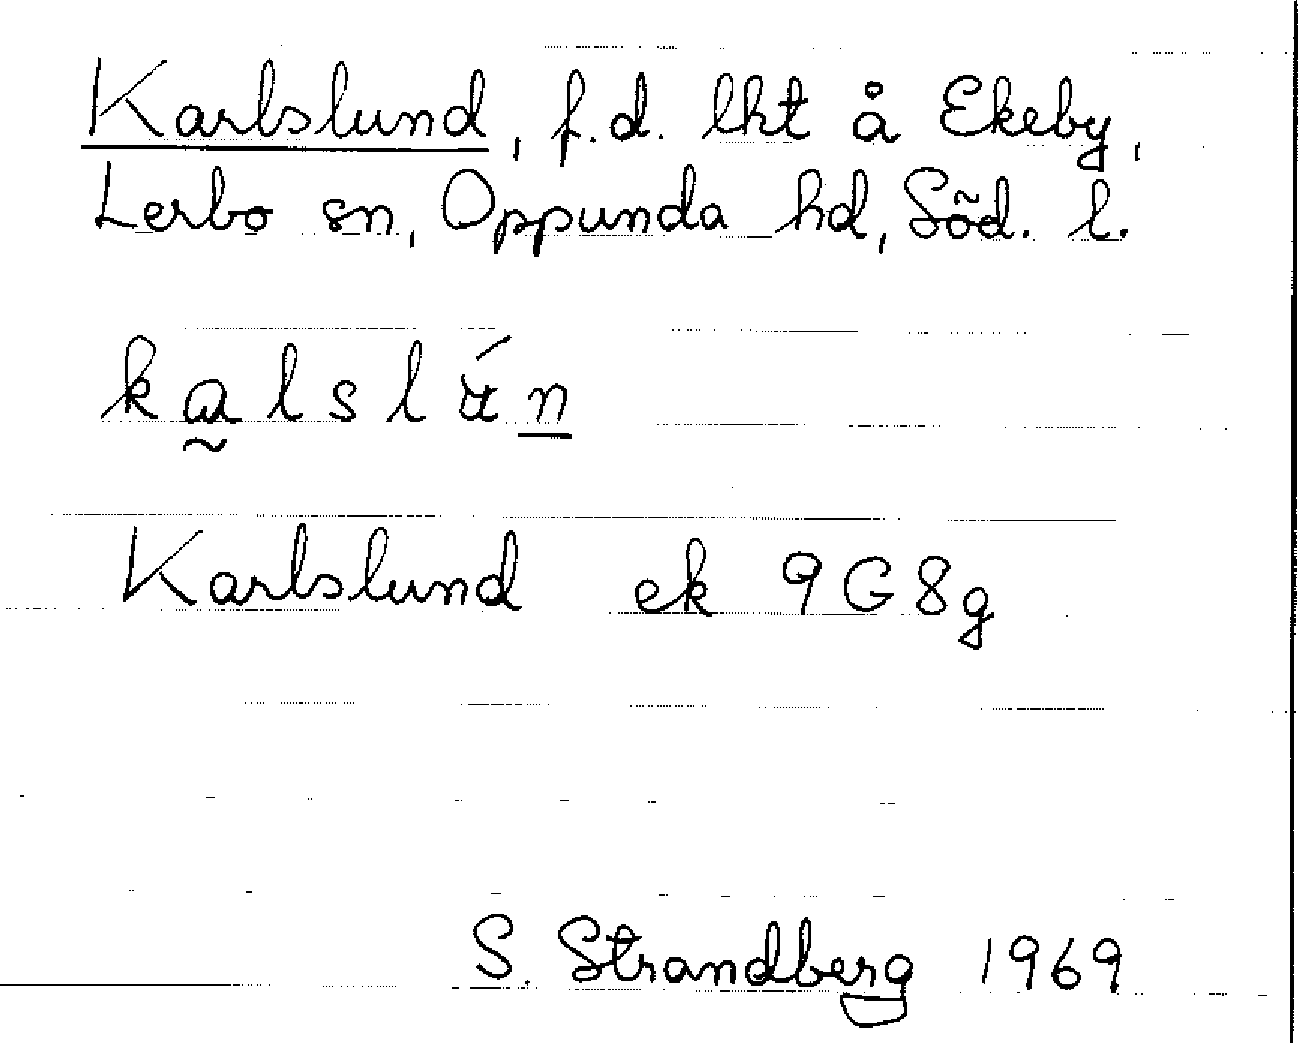 Karlslund, f.d. lht å Ekeby,
Lerbo sn, Oppunda hd, Söd. l.
kalslún
Karlslund ek 9G8g
S. Strandberg 1969